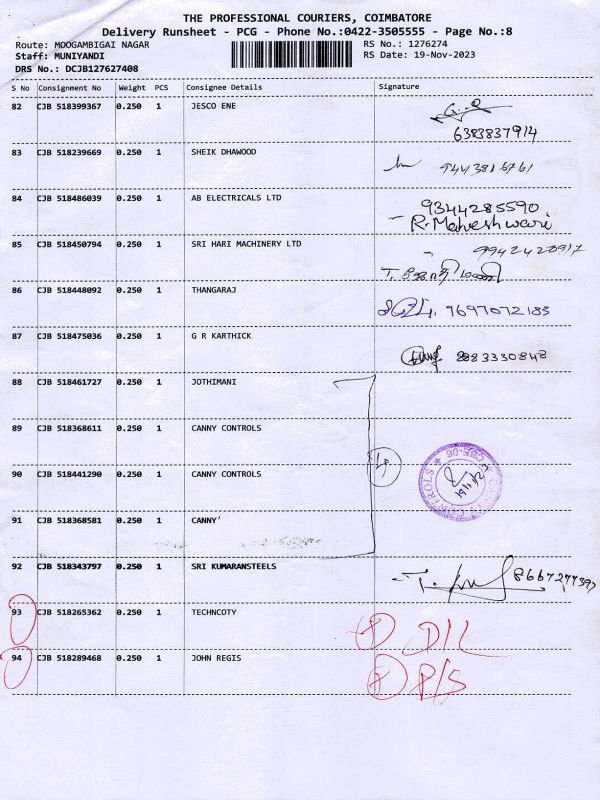 THE PROFESSIONAL COURIERS, COIMBATORE
Delivery Runsheet - PCG - Phone No.:0422-3505555 - Page No.:8
Route: MOOGAMBIGAI NAGAR RS No.: 1276274
Staff: MUNIYANDI RS Date: 19-Nov-2023
DRS No.: DCJB127627408
S No Consignment No Weight PCS Consignee Details Signature
82 CJB 518399367 0.250 1 JESCO ENE
6383837914
83 CJB 518239669 0.250 1 SHEIK DHAWOOD 9443816761
84 CJB 518486039 0.250 1 AB ELECTRICALS LTD 9344285590
R. Maheshwari
85 CJB 518450794 0.250 1 SRI HARI MACHINERY LTD 9942420917
T. ஜோதி மணி
86 CJB 518448092 0.250 1 THANGARAJ 9697072183
87 CJB 518475036 0.250 1 G R KARTHICK 8883330848
88 CJB 518461727 0.250 1 JOTHIMANI
89 CJB 518368611 0.250 1 CANNY CONTROLS
90 CJB 518441290 0.250 1 CANNY CONTROLS
CANNY CONTROLS ★ CBE-06 ★
91 CJB 518368581 0.250 1 CANNY'
92 CJB 518343797 0.250 1 SRI KUMARANSTEELS 8667277397
93 CJB 518265362 0.250 1 TECHNCOTY D/L
94 CJB 518289468 0.250 1 JOHN REGIS P/S